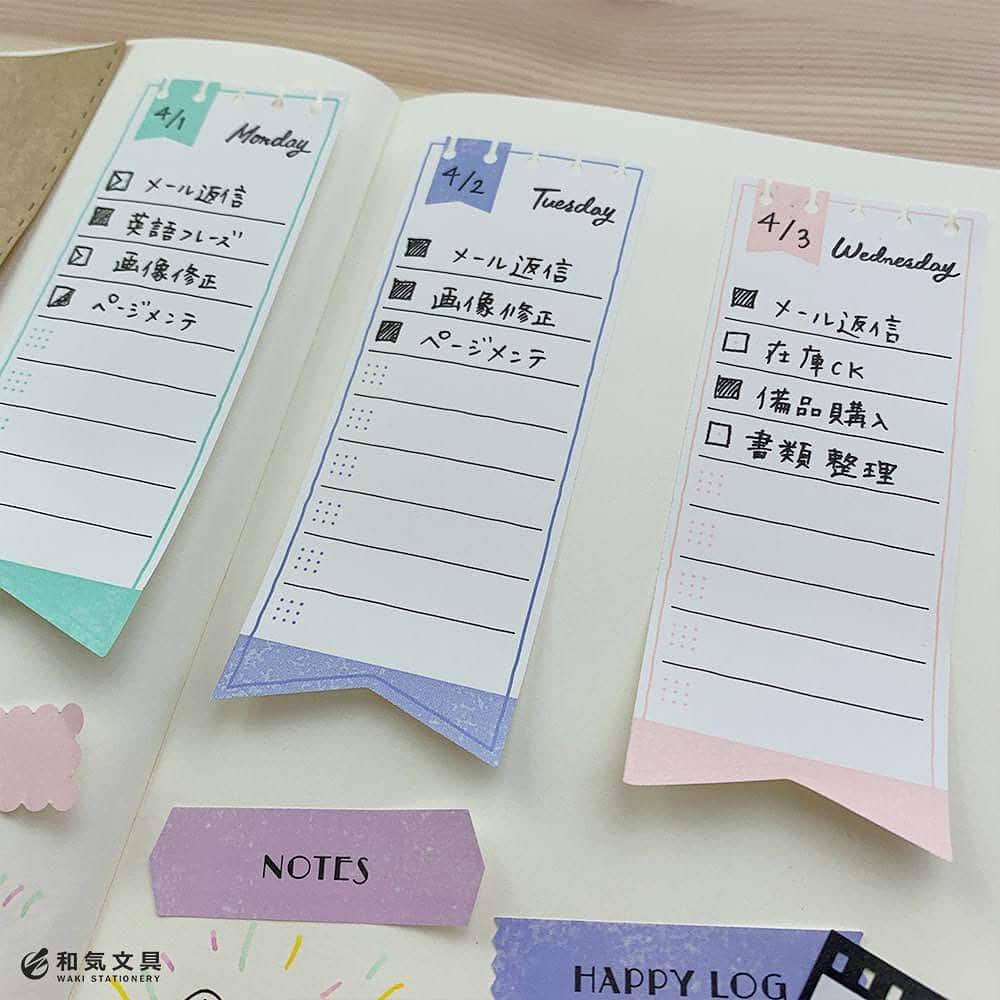 4/1
Monday
メール返信
英語フレーズ
画像修正
ページメンテ
4/2
Tuesday
メール返信
画像修正
ページメンテ
4/3
Wednesday
メール返信
在庫CK
備品購入
書類整理
NOTES
HAPPY LOG
和気文具
WAKI STATIONERY